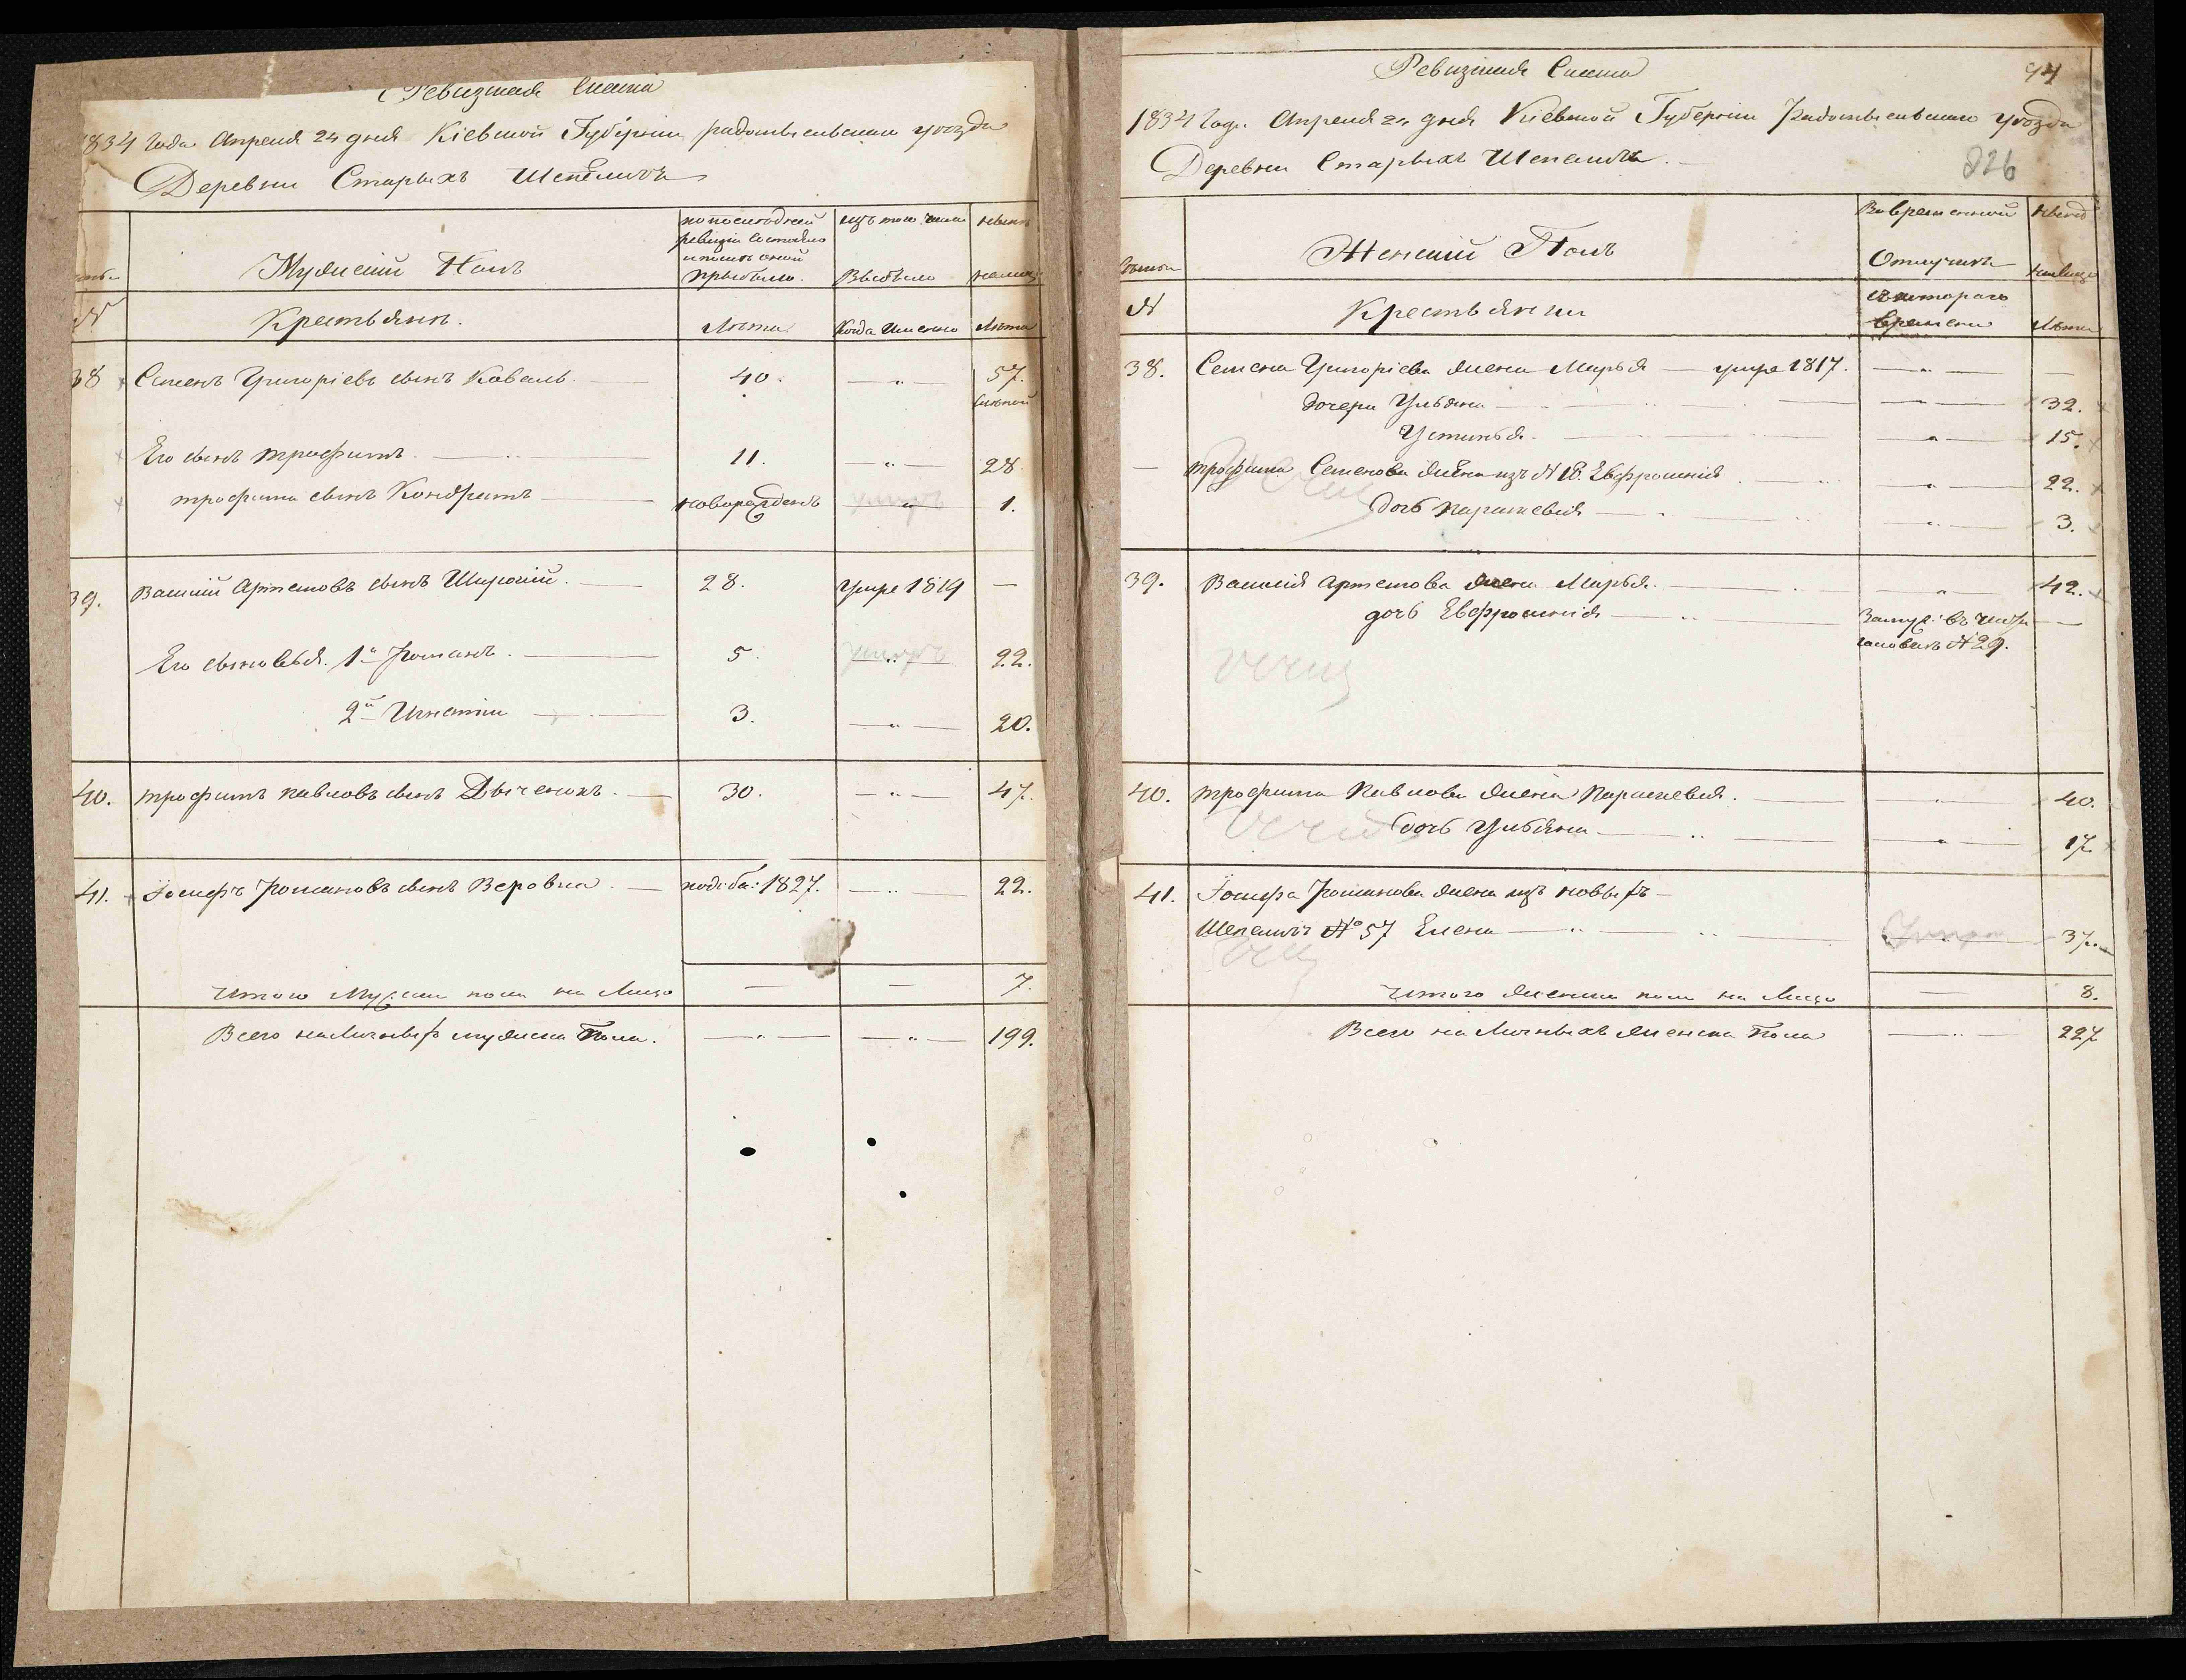 Ревизская Сказка
1834 Года Апреля 24 дня Кіевской Губерніи радомысльскаго уезда
Деревни Старыхъ Шепеличъ
Мужескій Полъ
по последней
ревизіи состояло
и после оной
прыбыло.
изъ того числа
Выбыло
ныне
налицо
№
Крестьяне.
Лета
Когда Именно
Лета
38 Семенъ Григоріевъ сынъ Коваль. 40. — „ — 57.
слепой
Его сынъ трофимъ. 11. — „ — 28
трофима сынъ Кондратъ новорожденъ умеръ 1.
39. Василій Артемовъ сынъ Широкій. 28. умре 1819 —
Его сыновья. 1й Романъ. 5. умеръ 22.
2й Игнатій 3. — „ — 20.
40. трофимъ павловъ сынъ Дяченокъ. 30. — „ — 47.
41. Іосифъ Романовъ сынъ Веровка 1827. — „ — 22.
Итого Мужеска пола на Лицо — — 7.
Всего на Личныхъ мужеска Пола. — „ — — „ — 199.
Ревизская Сказка
94
1834 Года Апреля 24 дня Кіевской Губерніи Радомысльскаго уезда
Деревни Старыхъ Шепеличъ.
226
Семьи
Женскій Полъ
Во временной
Отлучке
ныне
налицо
№
Крестьянки
съ котораго
времени
Лета
38. Семена Григоріева жена Марья — умре 1817. — „ — —
дочери Ульяна — „ — 32.
Устинья — „ — 15.
трофима Семенова жена изъ № 18. Евфросинія — „ — 22.
дочь параскевія — „ — 3.
39. Василія Артемова жена Марья. — „ — 42.
дочь Евфросинія —
№ 29.
40. трофима Павлова жена Параскевія. — „ — 40.
дочь Ульяна — „ — 17
41. Іосифа Романова жена изъ новыхъ —
Шепеличъ № 57 Елена — умерла 37.
Итого женска пола на Лицо — 8.
Всего на Личныхъ женска Пола — „ — 227